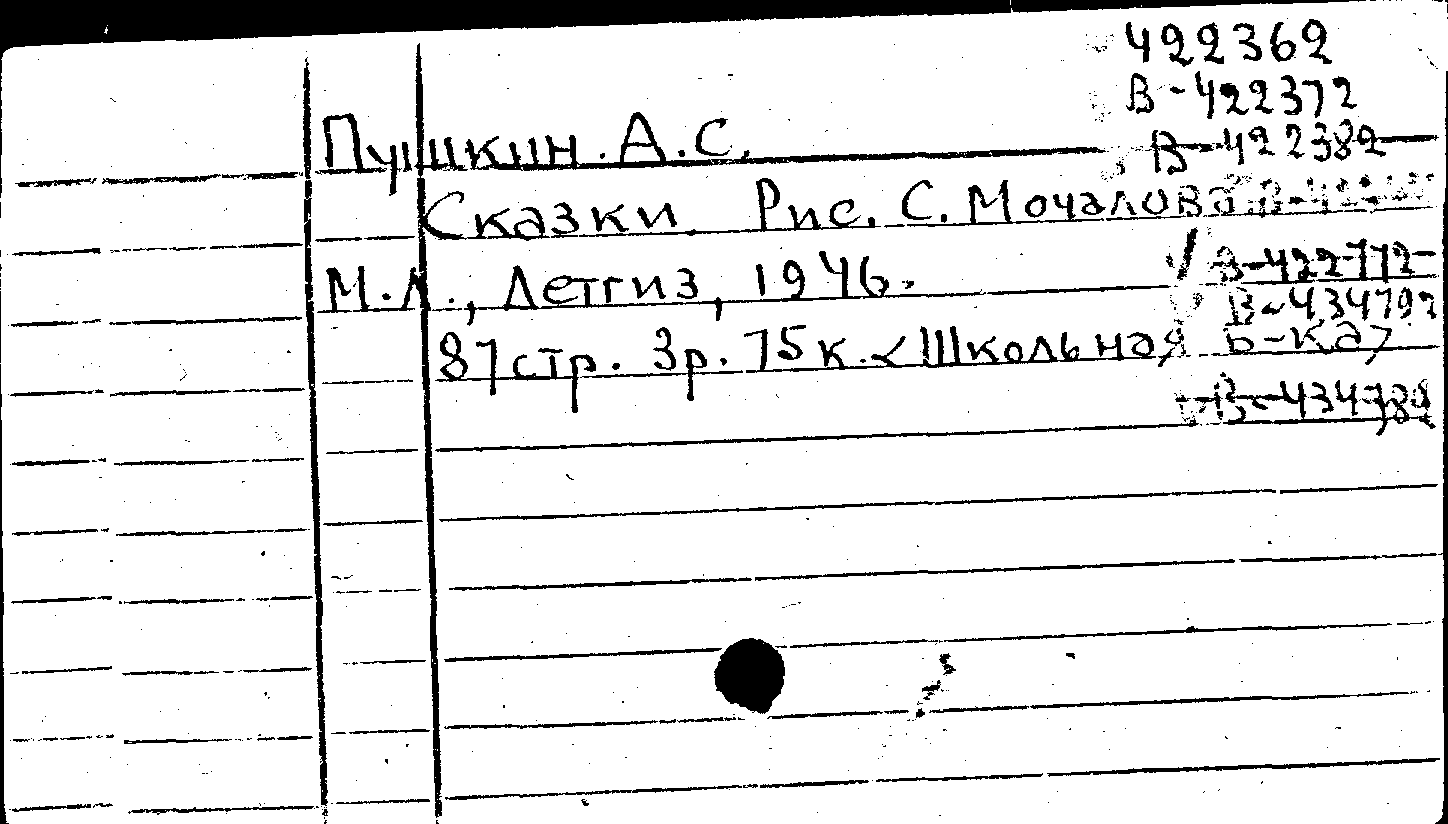 422362
В-422372
В-422382
Пушкин. А.С.
Сказки. Рис. С. Мочалова.
В-422772
М.Л., Детгиз, 1946.
В-434792
87стр. 3р. 75к. <Школьная б-ка>
В-434782